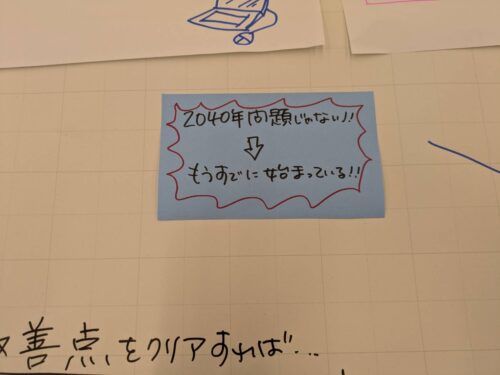 2040年問題じゃない!!
⇩
もうすでに始まっている!!
善点をクリアすれば…